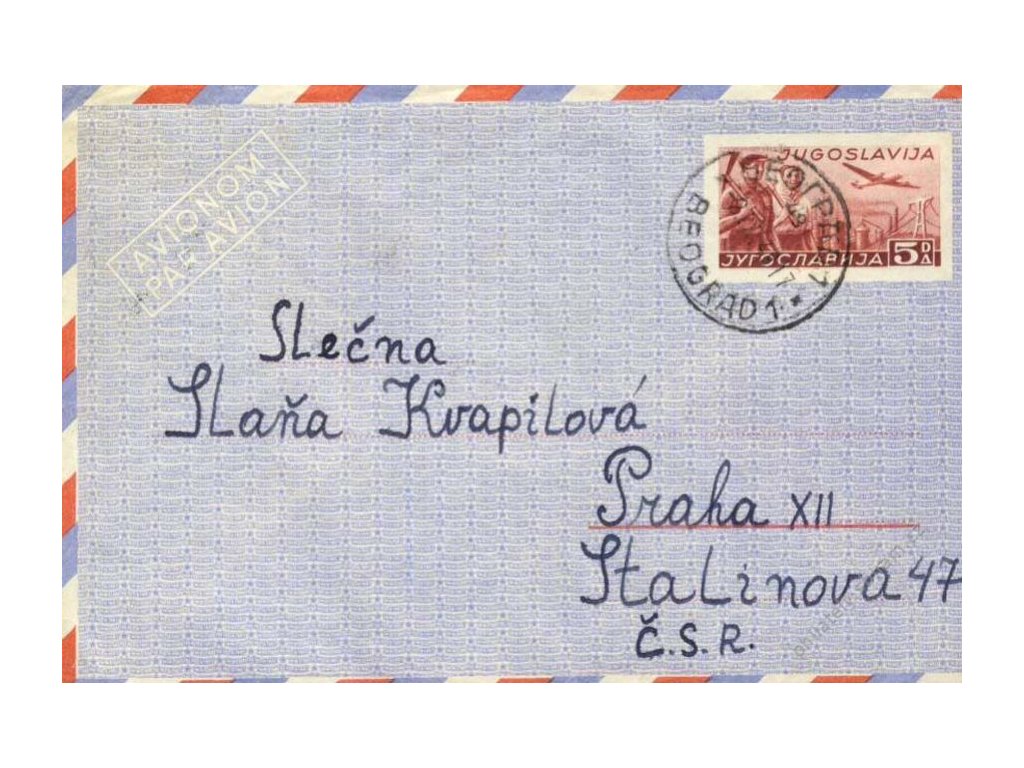 AVIONOM
PAR AVION
JUGOSLAVIJA
ЈУГОСЛАВИЈА 5 DД
БЕОГРАД 1
BEOGRAD 1
Slečna
Slaňa Kvapilová
Praha XII
Stalinova 47
Č.S.R.